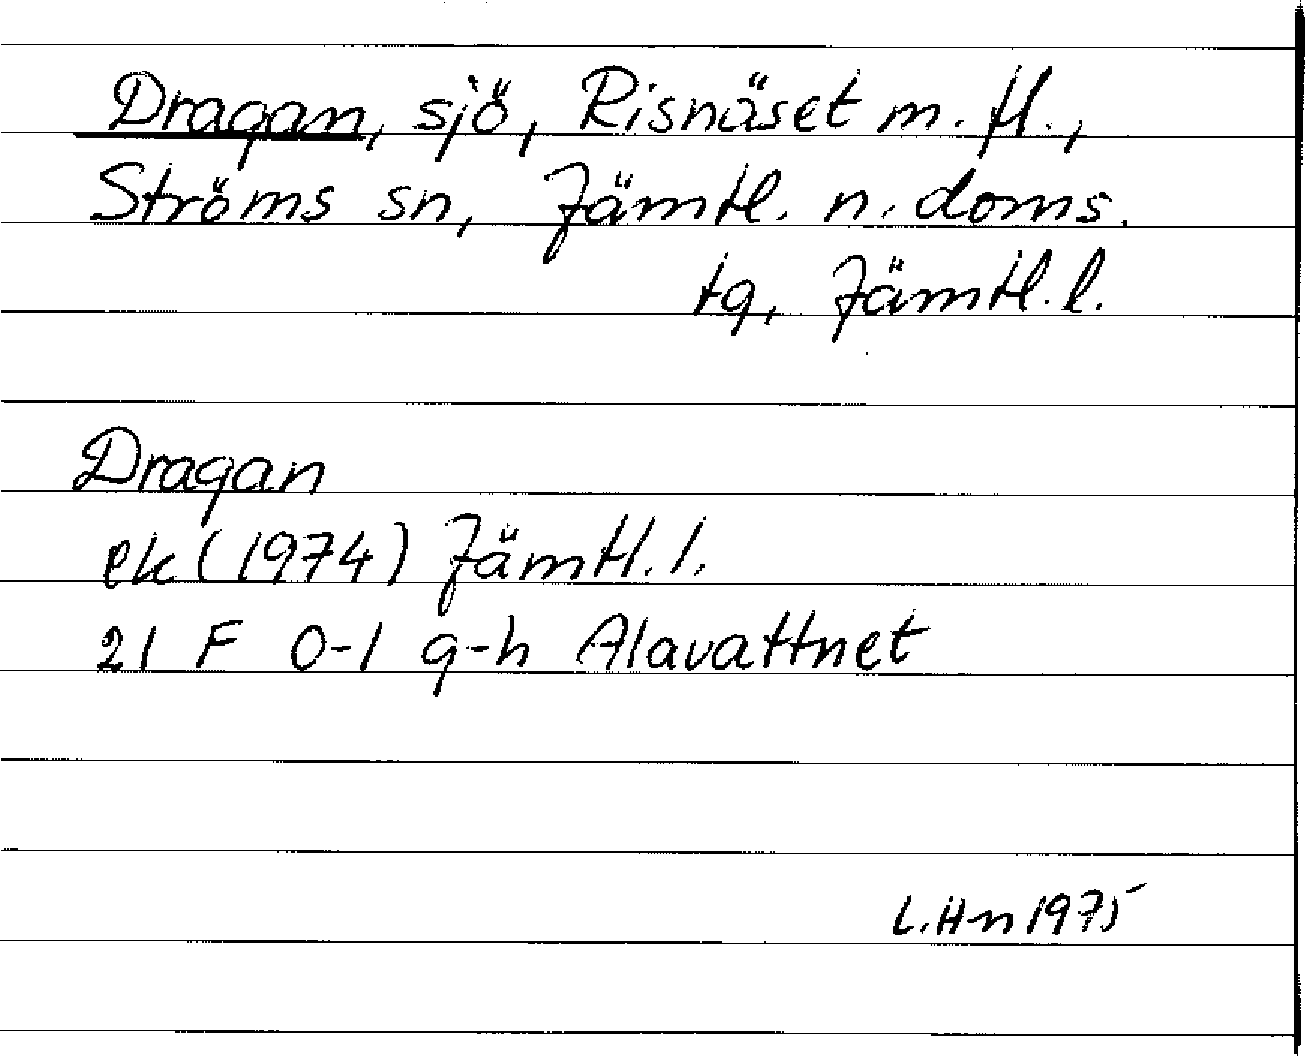 Dragan, sjö, Risnäset m. fl.,
Ströms sn, Jämtl. n. doms.
tg, Jämtl. l.
Dragan
ek (1974) Jämtl. l.
21 F 0-1 g-h Alavattnet
L. Hn 1975